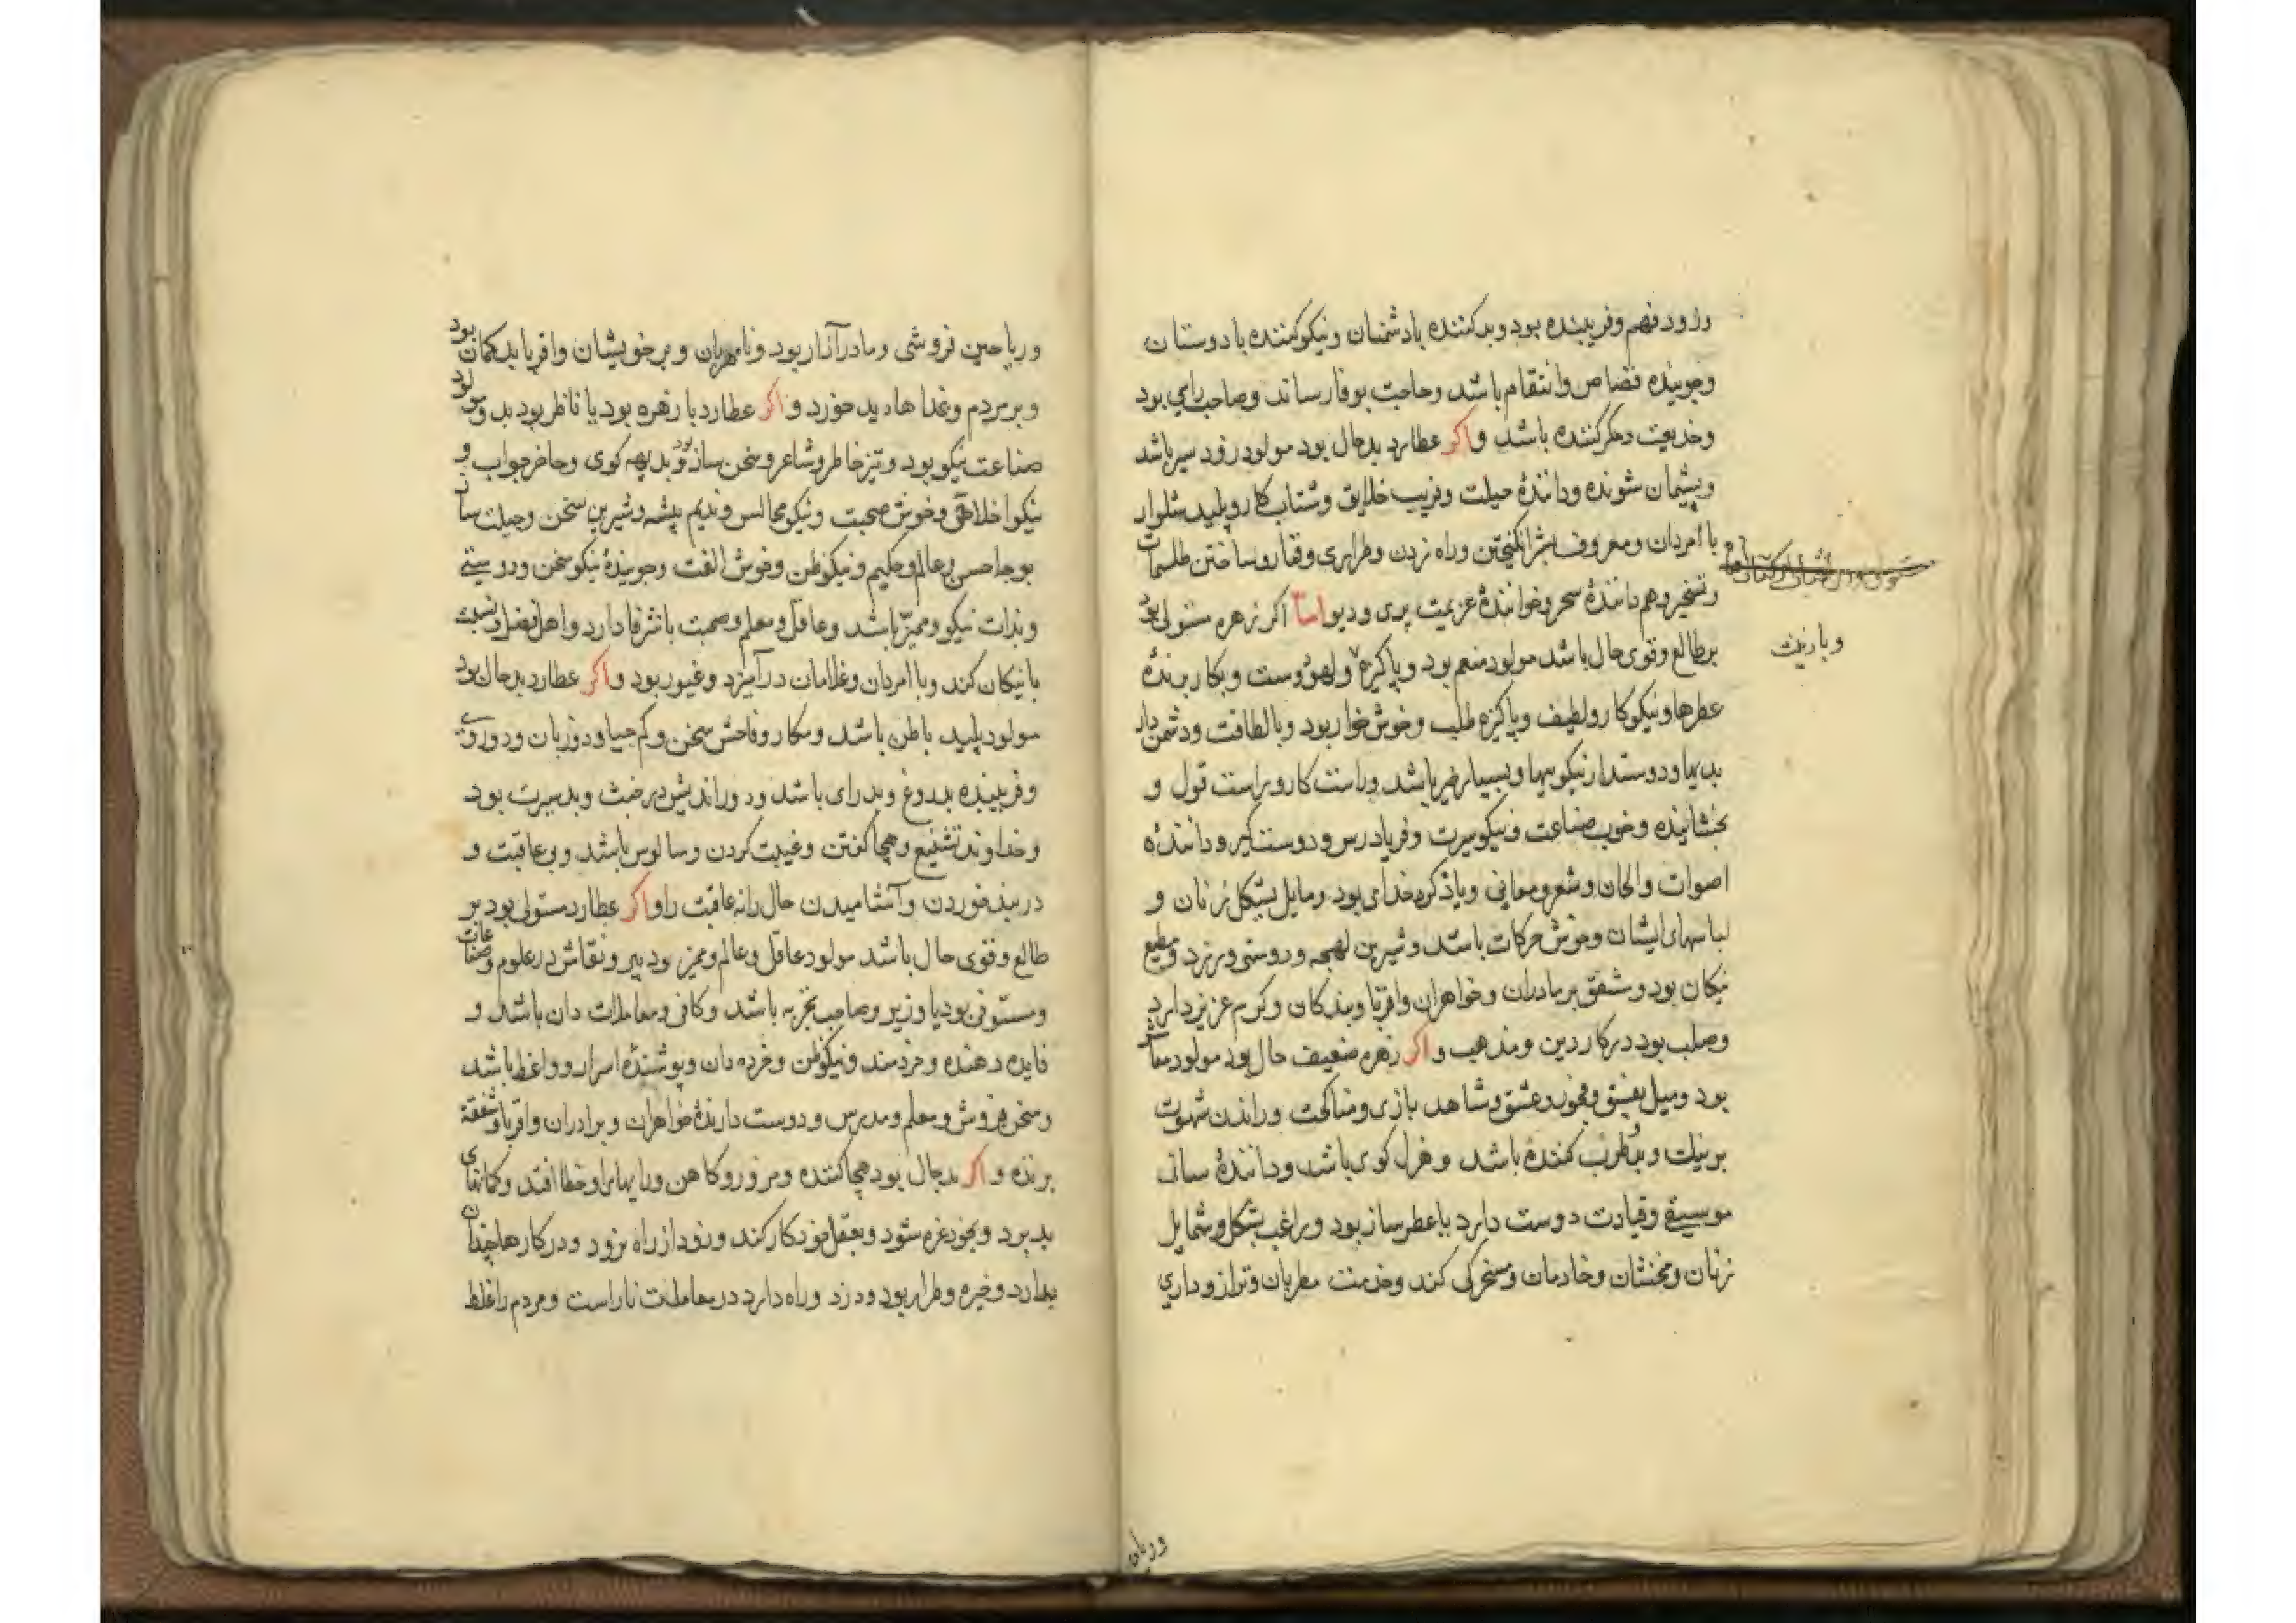 وزود فهم وفریبنده بود وبد کننده بادشمنان ونیکو کننده با دوستان
وجوینده قصاص وانتقام باشد وحاجت بوفا رساند وصاحب رای بود
وخدیعت ومکر کننده باشد واکر عطارد بدحال بود مولود زود سیر باشد
وپشیمان شونده ودانندۀ حیلت وفریب خلایق وشتاب کار وپلید شلوار
با امردان ومعروف بشر انکیختن وراه زدن وطراری وقفار وساختن طلسمات
وتسخیر وهم دانندۀ سحر وخوانندۀ عزیمت پری ودیو اما اکر زهره مستولی بود
برطالع وقوی حال باشد مولود منعم بود وپاکیزه ولهو دوست وبکار برندۀ
عطرها ونیکو کار ولطیف وپاکیزه طلب وخوش خوار بود وبا لطافت ودشمن دار
بدیها ودوستدار نیکوییها وبسیار خیر باشد وراست کار وراست قول و
بخشاینده وخوب صناعت ونیکو سیرت وفریادرس ودوست کیر ودانندۀ
اصوات والحان وشعر ومعانی ویاد کرد خدای بود ومایل بشکل زنان و
لباسهای ایشان وخوش حرکات باشد وشیرین لهجه ودوستی ورزد ومطیع
نیکان بود ومشفق بربرادران وخواهران واقربا وبندکان وکرم عزیز دارد
وصلب بود در کار دین ومذهب واکر زهره ضعیف حال بود مولود معاشر
بود ومیل بفسق وفجور وعشق وشاهد بازی ومناکحت وراندن شهوت
برنیک وبد وطرب کننده باشد وغزل کوی باشد ودانندۀ ساز
موسیقی وقیادت دوست دارد یا عطر ساز بود وراغب بشکل وشمایل
زنان ومخنثان وخادمان ومسخرکی کند وخدمت مطربان وترازو داری
وبا زینت
وریاحین
وریاحین فروشی ومادر آزار بود ونامهربان وبرخویشان واقربا بدکمان بود
وبرمردم وغذاهاء بد خورد واکر عطارد با زهره بود یا ناظر بود بدو مولود
صناعت نیکو بود وتیز خاطر وشاعر وسخن ساز بود وبدیهه کوی وحاضر جواب و
نیکو اخلاق وخوش صحبت ونیکو مجالس وندیم پیشه وشیرین سخن وحیلت ساز
بوجه احسن وعالم وحکیم ونیکو ظن وخوش الفت وجویندۀ نیکو سخن ودوستی
وبذات نیکو وممیز باشد وعاقل ومعلم وصحبت با شرفا دارد واهل فضل ونسبت
با نیکان کند وبا امردان وغلامان درآمیزد وغیور بود واکر عطارد بدحال بود
مولود پلید باطن باشد ومکار وفاحش سخن وکم حیا ودو زبان ودوروی
وفریبنده بدروغ وبد رای باشد ودوراندیش در خبث وبد سیرت بود
وخداوند تشنیع وهجا کفتن وغیبت کردن وسالوس باشد وبی عاقبت و
در نبیذ خوردن وآشامیدن حال را نه عاقبت را واکر عطارد مستولی بود بر
طالع وقوی حال باشد مولود عاقل وعالم وممیز بود دبیر ونقاش در علوم وصناعات
ومستوفی بود یا وزیر وصاحب تجربه باشد وکافی ومعاملات دان باشد و
فایده دهنده وخردمند ونیکو ظن وخرده دان وپوشندۀ اسرار وواعظ باشد
وسخن فروش ومعلم ومدرس ودوست دارندۀ خواهران وبرادران واقربا وشفقة
برنده واکر بدحال بود هجا کننده ومزور وکاهن ورایهای او خطا افتد وکمانهای
بد برد وبخود غره شود وبعقل خود کار کند وزود از راه برود ودر کارها چندان
بدارد وخیره وطرار بود ودزد وراه دارد در معاملت ناراست ومردم را غلط